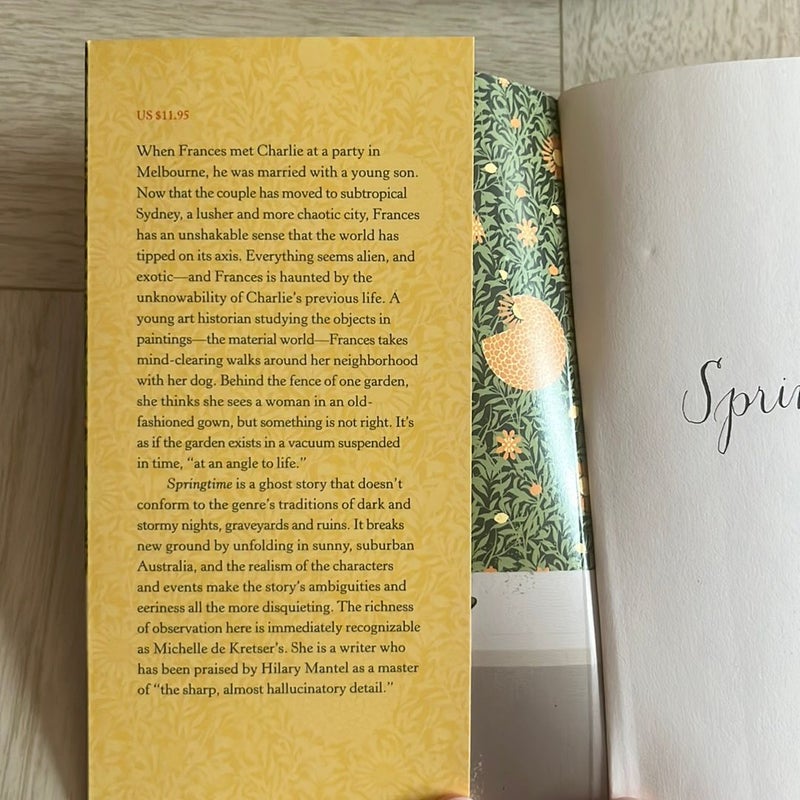 US $11.95
When Frances met Charlie at a party in
Melbourne, he was married with a young son.
Now that the couple has moved to subtropical
Sydney, a lusher and more chaotic city, Frances
has an unshakable sense that the world has
tipped on its axis. Everything seems alien, and
exotic—and Frances is haunted by the
unknowability of Charlie's previous life. A
young art historian studying the objects in
paintings—the material world—Frances takes
mind-clearing walks around her neighborhood
with her dog. Behind the fence of one garden,
she thinks she sees a woman in an old-
fashioned gown, but something is not right. It's
as if the garden exists in a vacuum suspended
in time, "at an angle to life."
Springtime is a ghost story that doesn't
conform to the genre's traditions of dark and
stormy nights, graveyards and ruins. It breaks
new ground by unfolding in sunny, suburban
Australia, and the realism of the characters
and events make the story's ambiguities and
eeriness all the more disquieting. The richness
of observation here is immediately recognizable
as Michelle de Kretser's. She is a writer who
has been praised by Hilary Mantel as a master
of "the sharp, almost hallucinatory detail."
Sprin